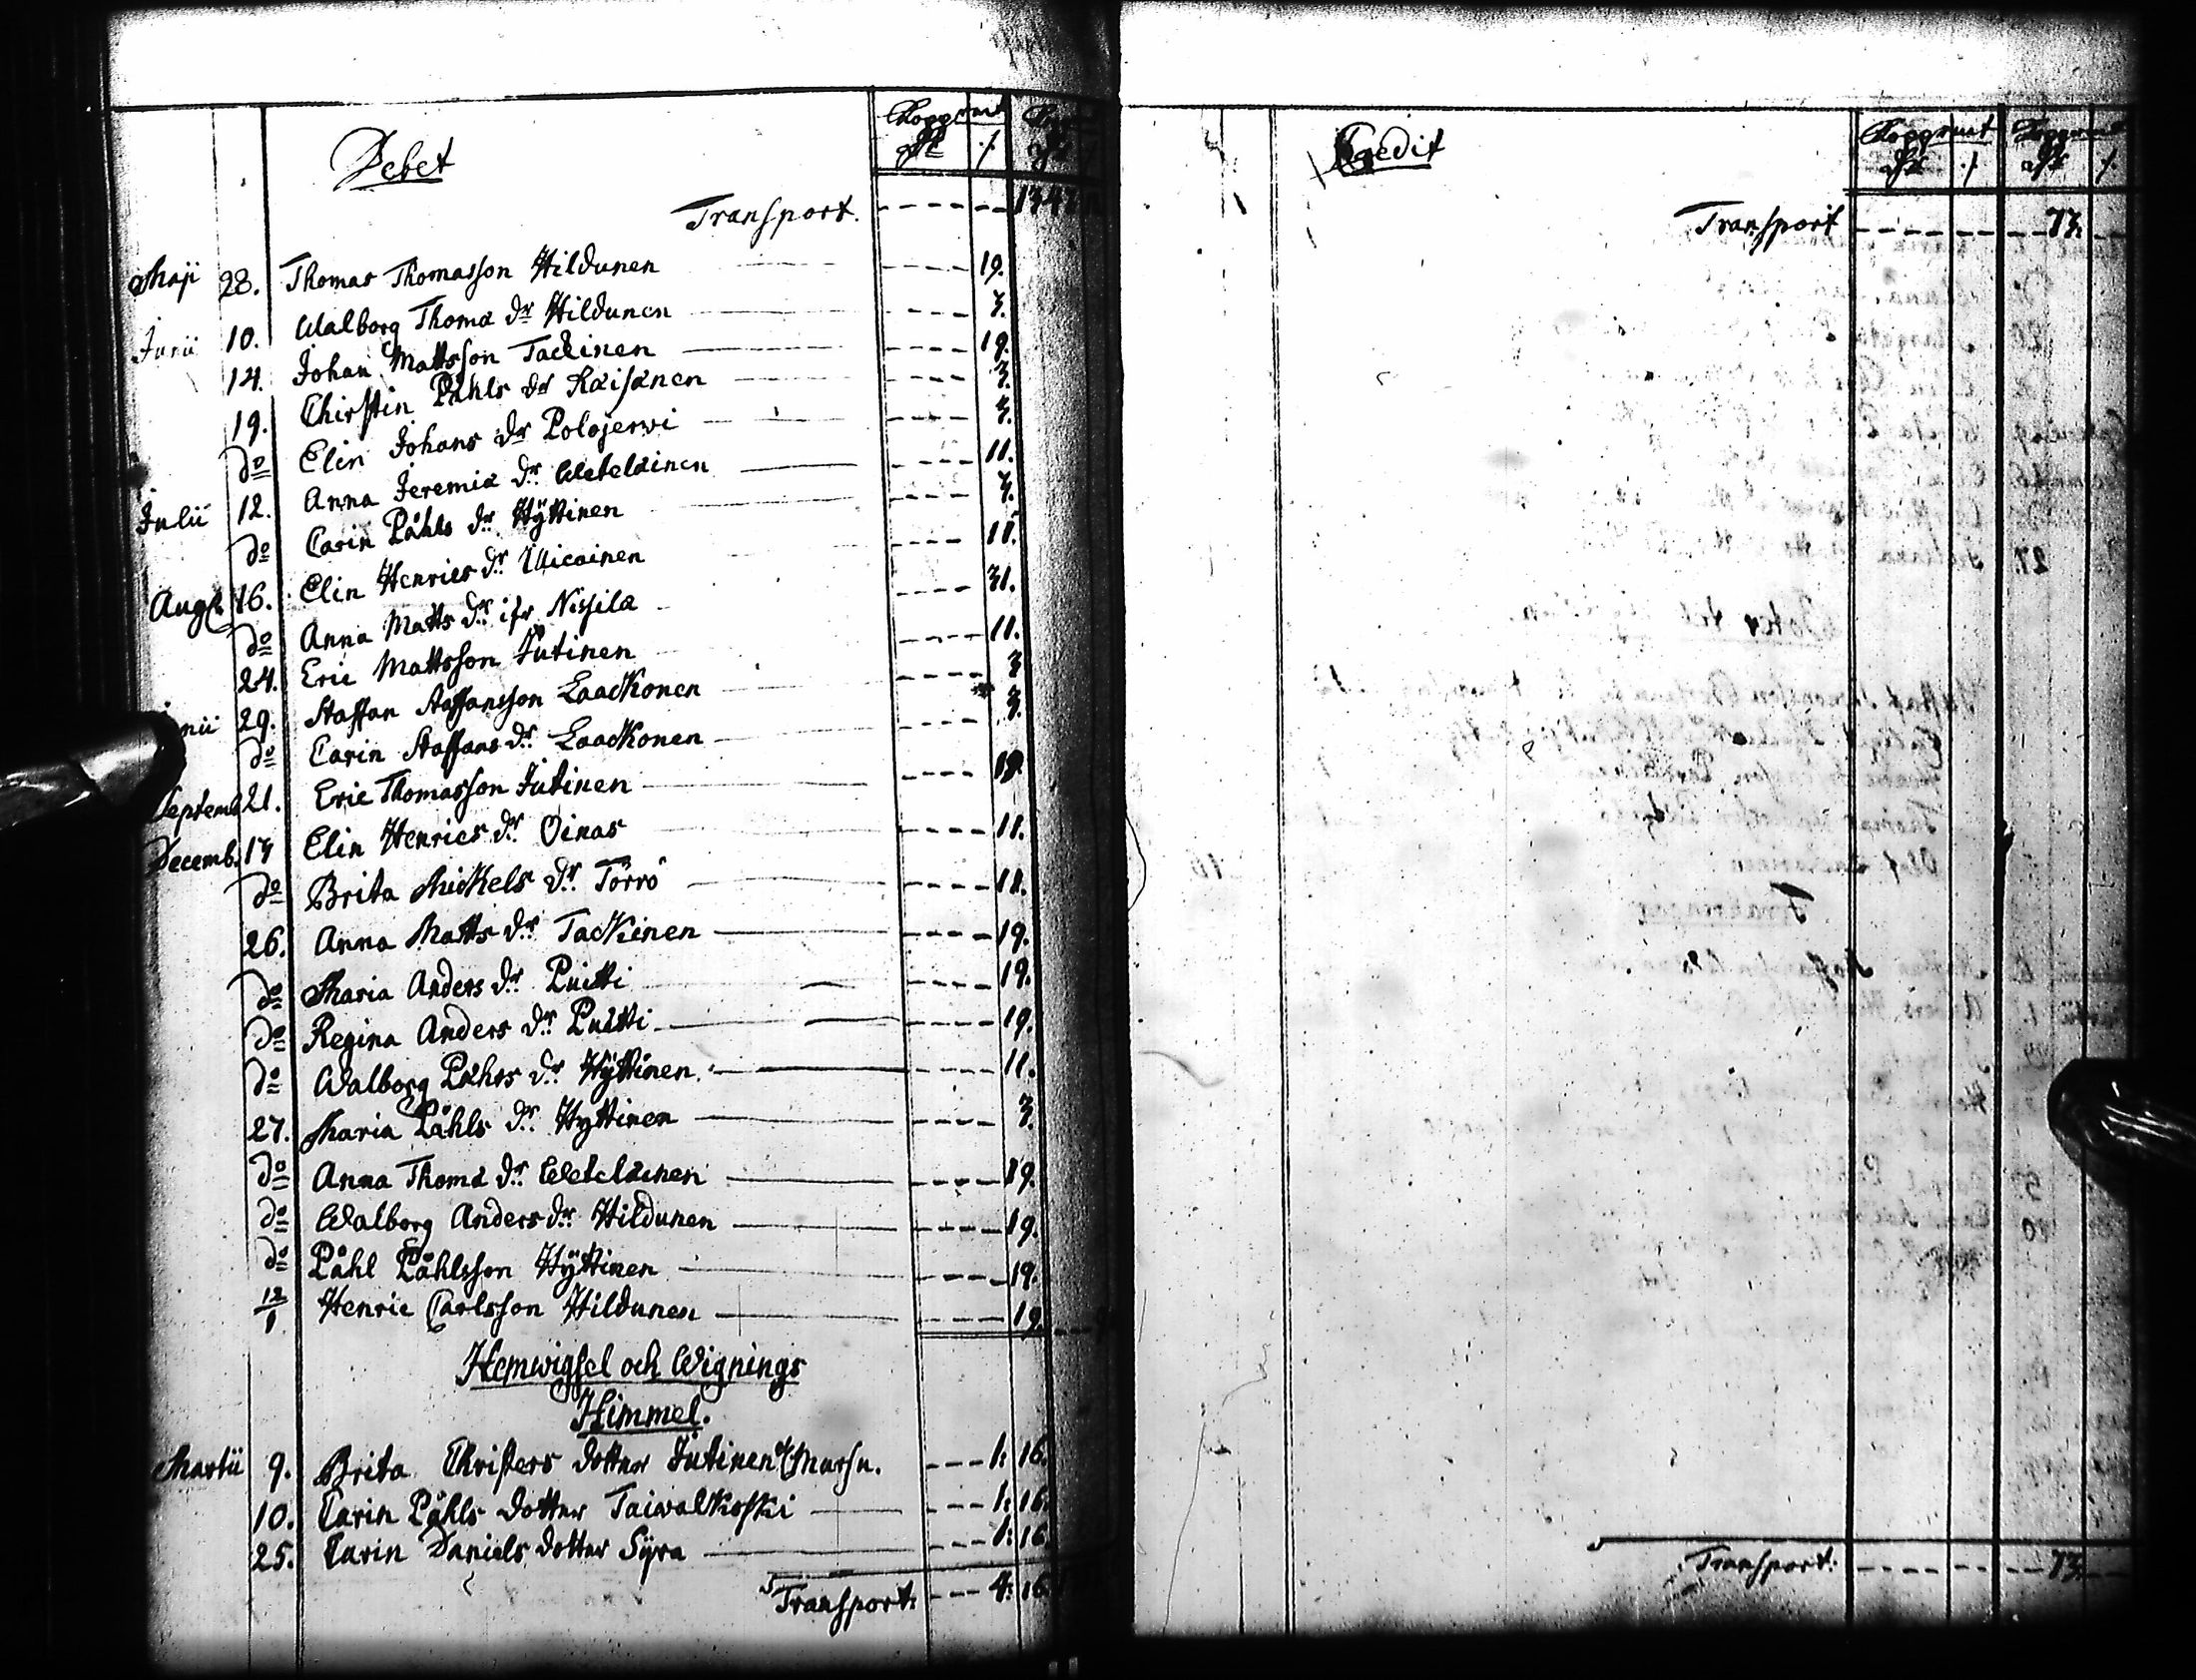 Debet
Koppmt
Transport. 1347
Maji 28. Thomas Thomasson Hildunen 19.
Junii 10. Walborg Thomæ Dr Hildunen 3.
14. Johan Mattsson Tackinen 19.
19. Chirstin Påhls dr Räisänen 3.
do Elin Johans dr Polojerwi 3.
Julii 12. Anna Jeremiæ dr Weteläinen 11.
do Carin Påhls dr Hÿttinen 3.
Aug. 16. Elin Henrics dr 11.
do Anna Matts dr ifr Nissilä 31.
24. Eric Mattsson Jutinen 11.
29. Staffan Staffansson Laackonen 3
do Carin Staffans dr Laackonen 3.
Septemb 21. Eric Thomasson Jutinen 19.
Decemb. 17 Elin Henrics dr Oinas 11.
do Brita Mickels dr Törrö 11.
26. Anna Matts dr Tackinen 19.
do Maria Anders dr Puitti 19.
do Regina Anders dr Puitti 19.
do Walborg Påhls dr Hÿttinen 11.
27. Maria Påhls dr Hyttinen 3.
do Anna Thomæ dr Weteläinen 19.
do Walborg Anders dr Hildunen 19.
do Påhl Påhlsson Hÿttinen 19.
12/1 Henric Carlsson Hildunen 19.
Hemwigsel och Wignings
Himmel.
Martii 9. Brita Christers dotter Jutinen 1: 16.
10. Carin Påhls dotter Taiwalkoski 1: 16.
25. Carin Daniels dotter Sÿra 1: 16
Transport: 4: 16
Credit
Koppmt Koppmt
Transport 73.
Transport: 73.